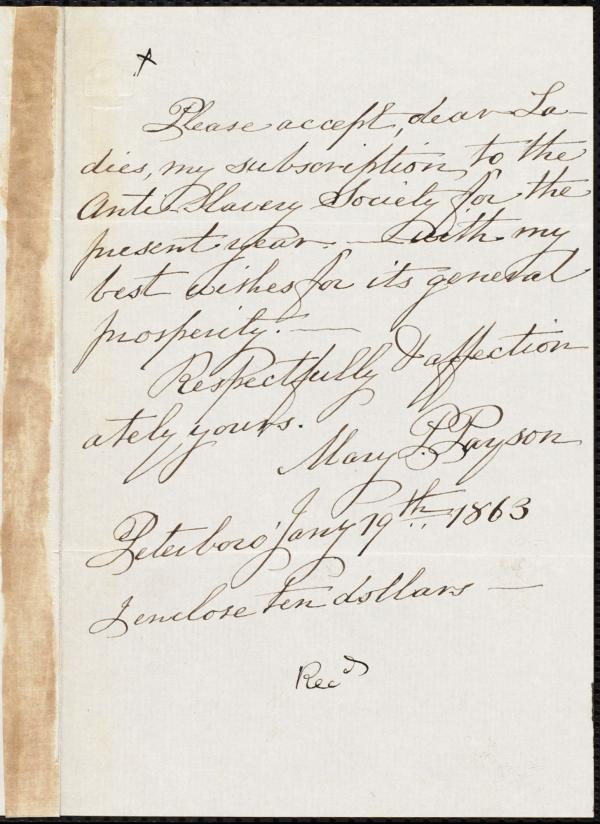 Please accept, dear La-
dies, my subscription to the
Anti Slavery Society for the
present year. — with my
best wishes for its general
prosperity. —
Respectfully & affection
ately yours.
Mary P. Payson
Peterboro' Jany 19th 1863
I enclose ten dollars —
Recd